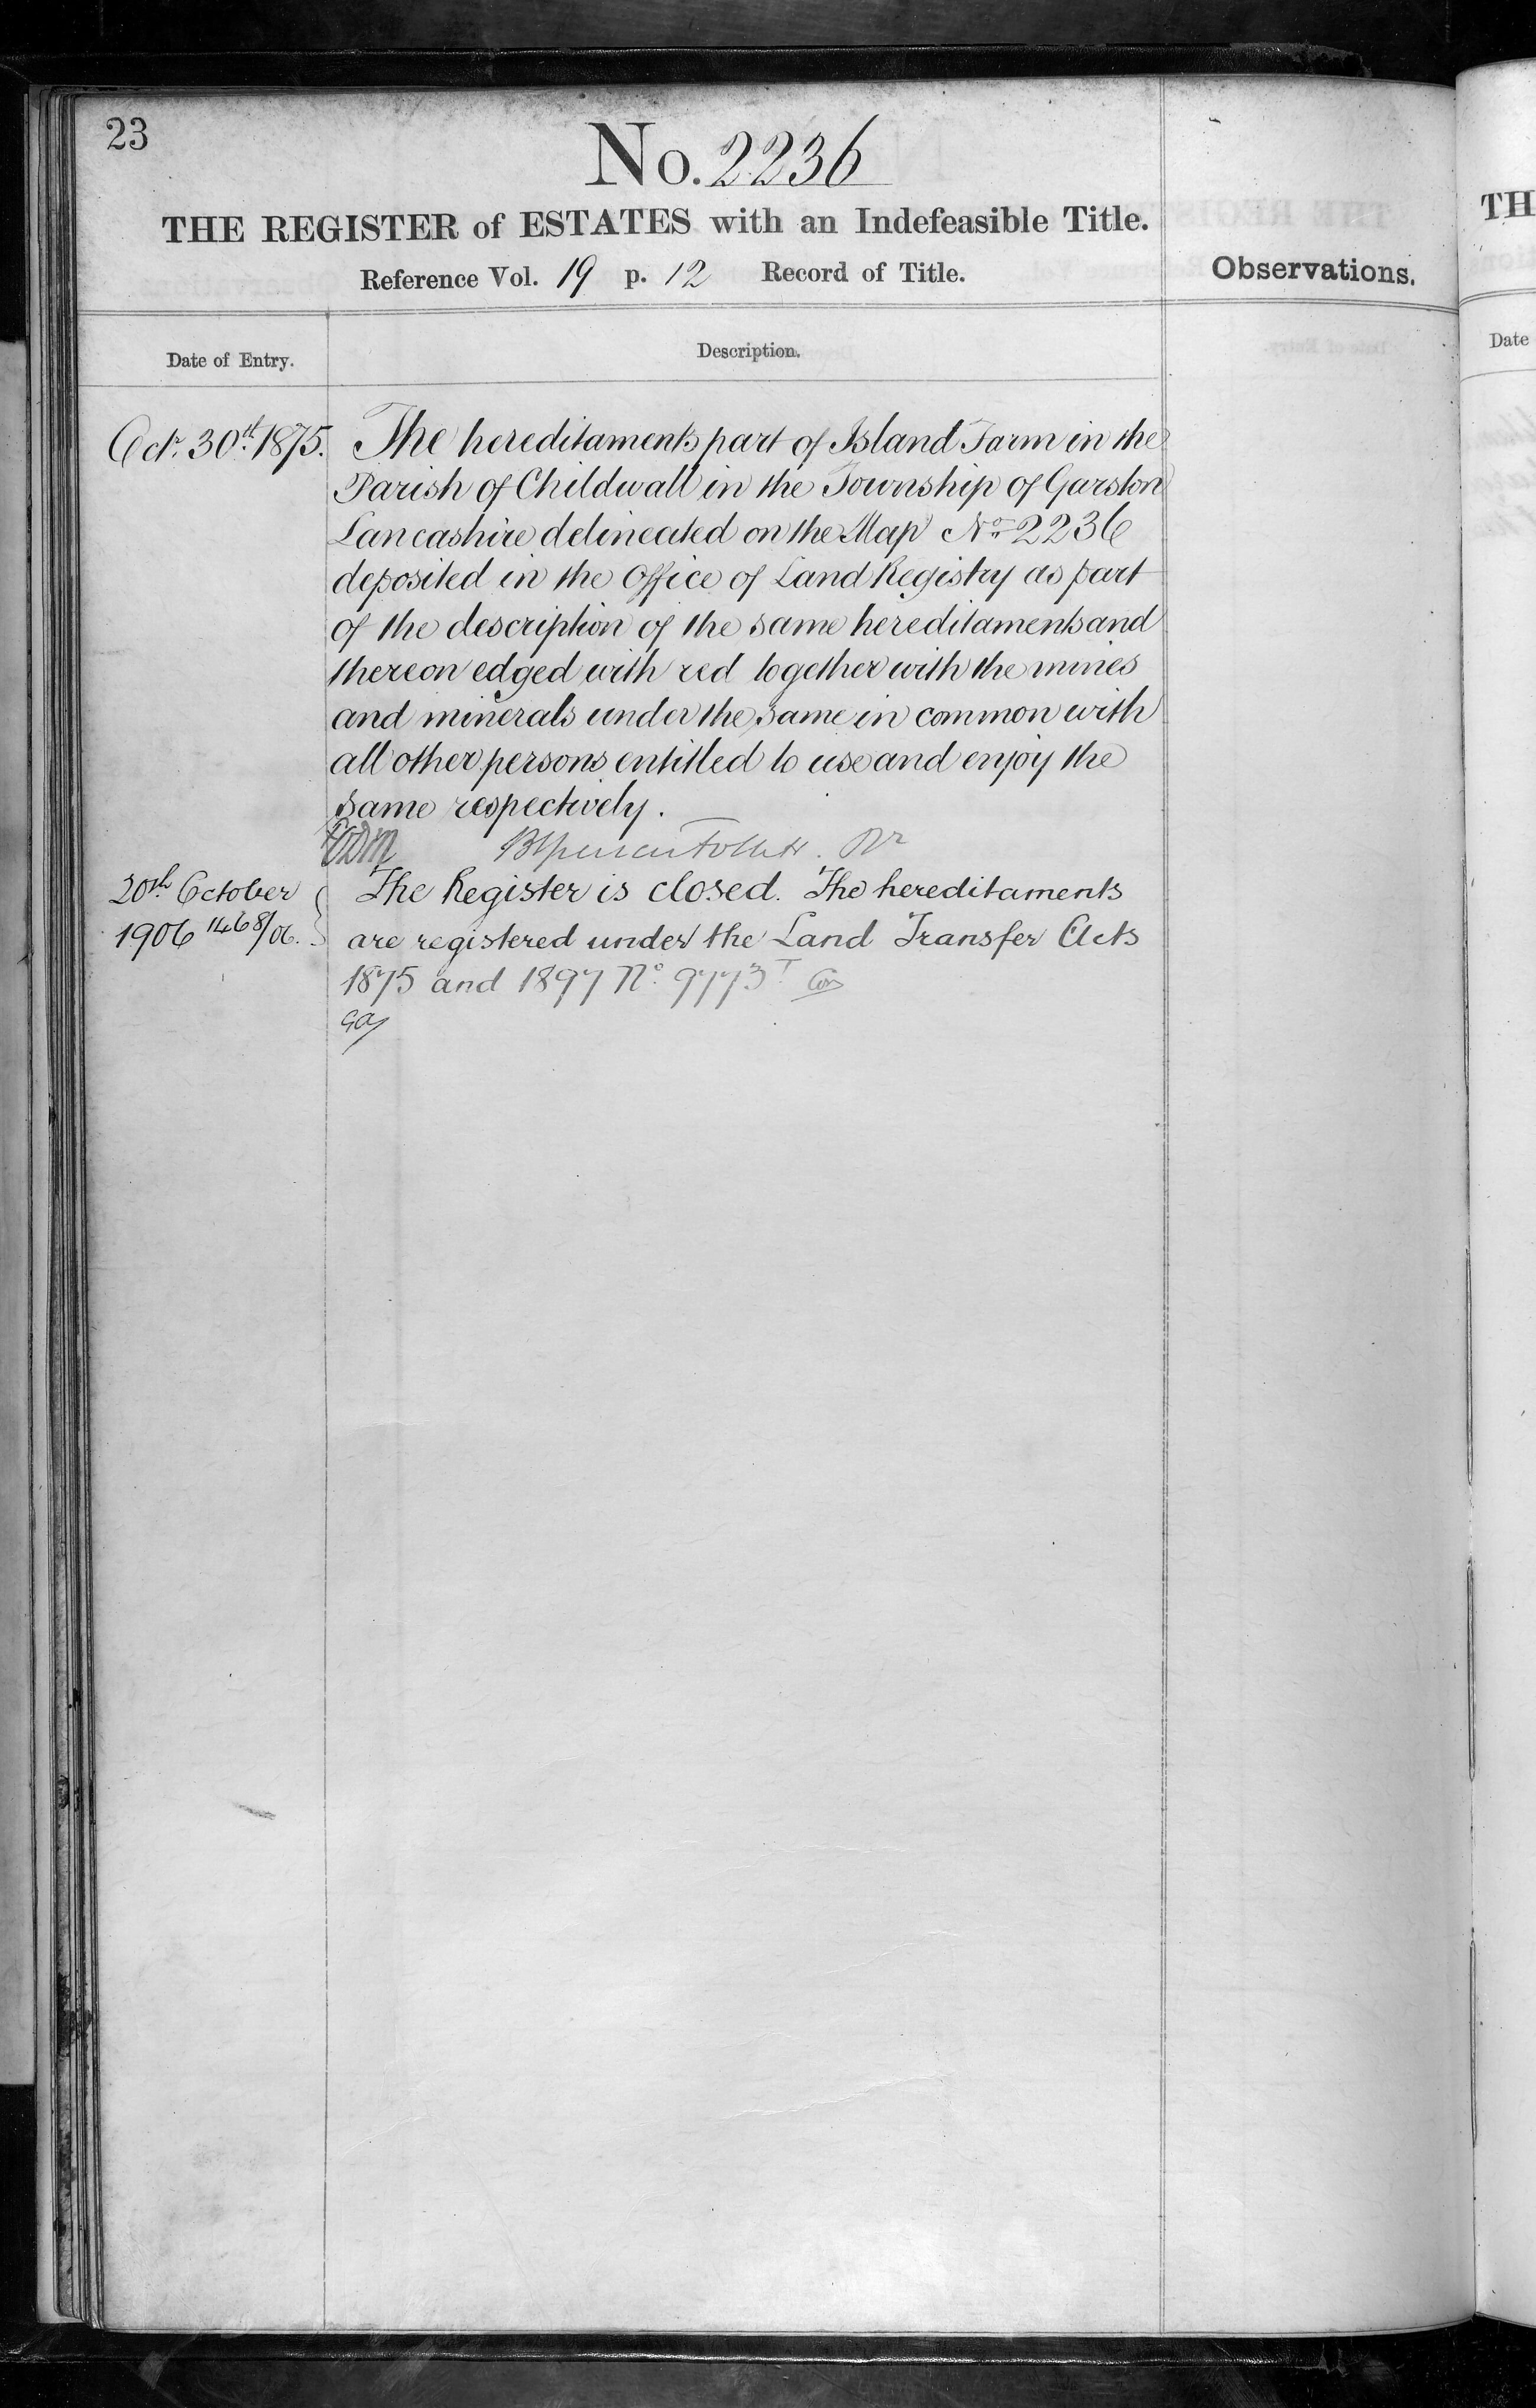 23
No. 2236
THE REGISTER of ESTATES with an Indefeasible Title.
Reference Vol. 19 p. 12 Record of Title.
Observations.
Date of Entry.
Description.
Octr. 30th. 1875.
The hereditaments part of Island Farm in the
Parish of Childwall in the Township of Garston
Lancashire delineated on the Map No. 2236
deposited in the Office of Land Registry as part
of the description of the same hereditaments and
thereon edged with red together with the mines
and minerals under the same in common with
all other persons entitled to use and enjoy the
same respectively.
20th October
1906 1468/06.
The Register is closed. The hereditaments
are registered under the Land Transfer Acts
1875 and 1897 No. 9773
TH
Date